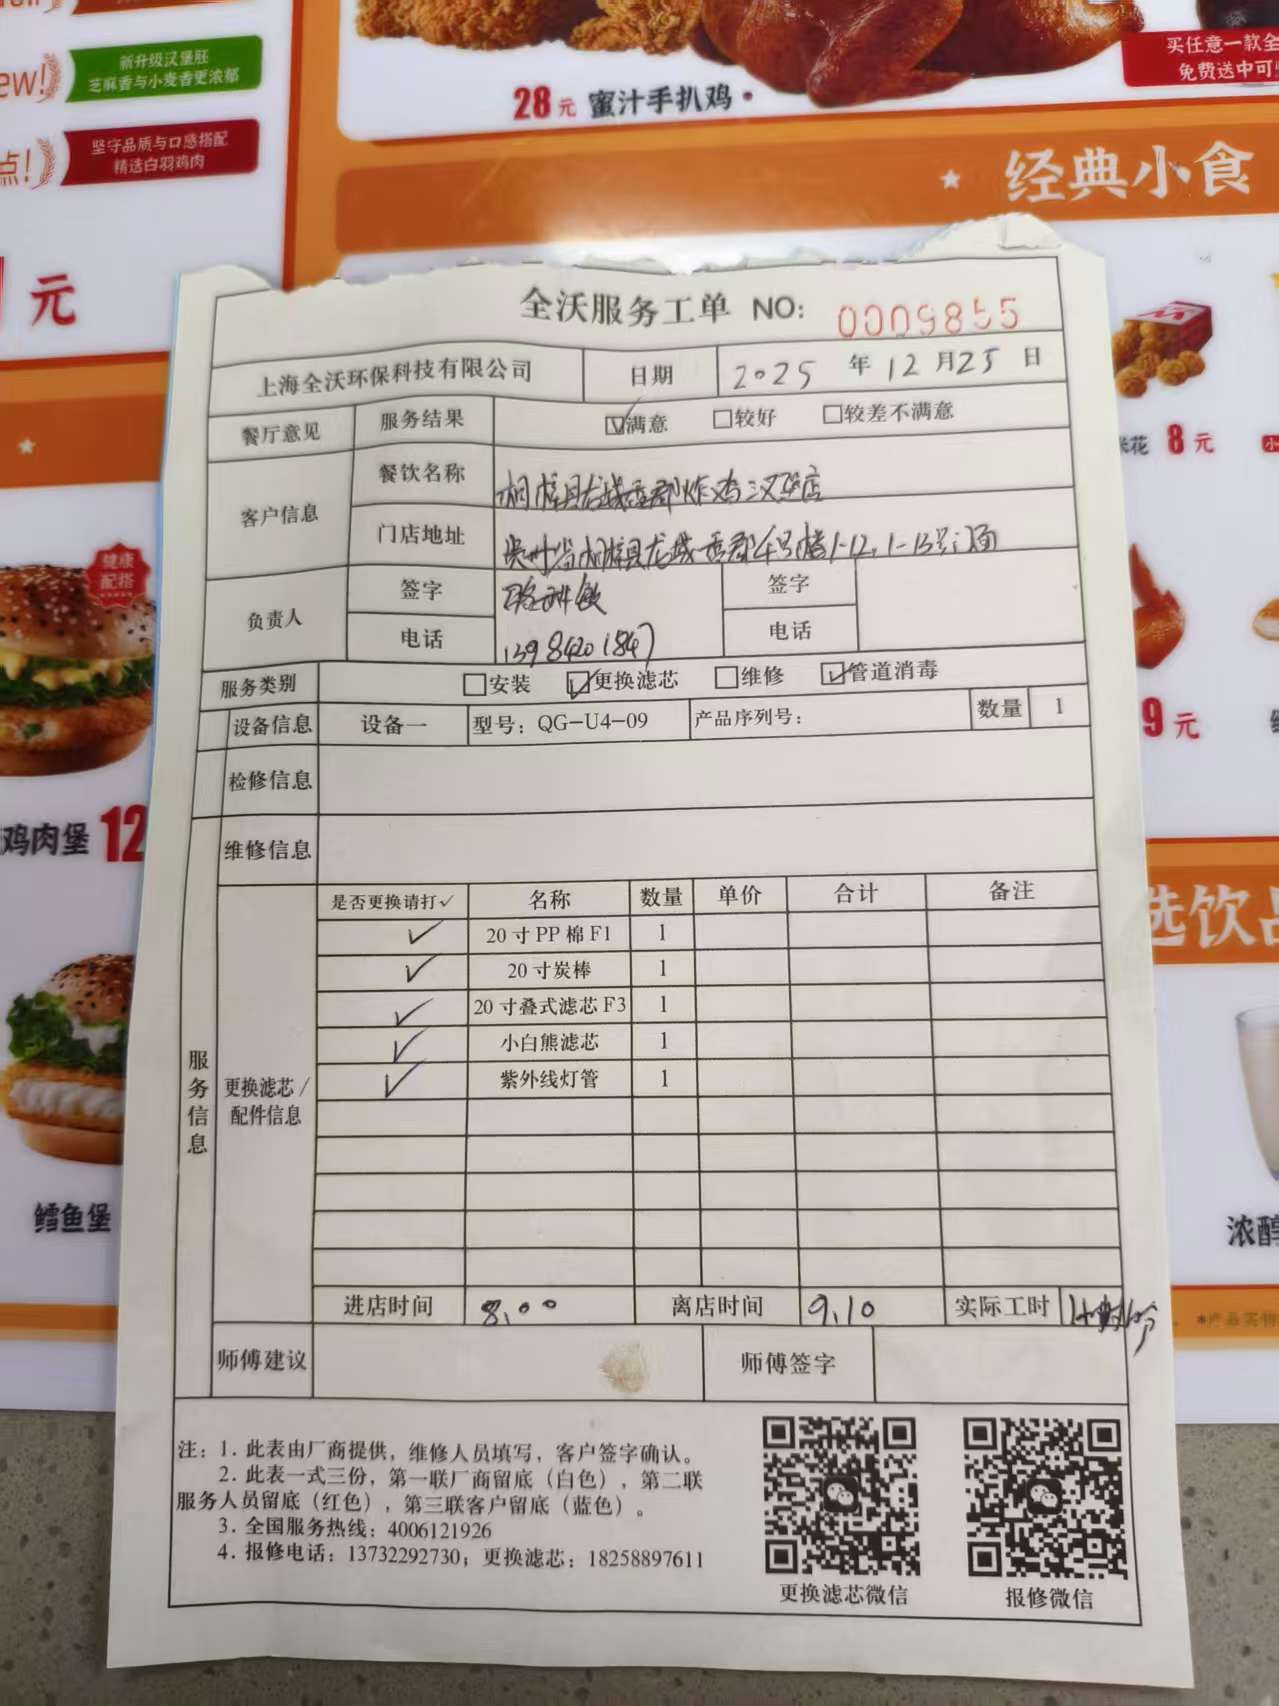 新升级汉堡胚
芝麻香与小麦香更浓郁
坚守品质与口感搭配
精选白羽鸡肉
点!
元
28元 蜜汁手扒鸡
买任意一款全
免费送中可
经典小食
米花 8元
9元
健康
配搭
鸡肉堡 12
鳕鱼堡
选饮品
浓醇
全沃服务工单 NO: 0009855
上海全沃环保科技有限公司 日期 2025 年 12 月 25 日
餐厅意见 服务结果 ☑满意 □较好 □较差不满意
客户信息 餐饮名称 桐梓县龙城香郡炸鸡汉堡店
门店地址 贵州省桐梓县龙城香郡 号楼1-12,1-13号门面
负责人 签字 签字
电话 13984201847 电话
服务类别 □安装 ☑更换滤芯 □维修 ☑管道消毒
设备信息 设备一 型号: QG-U4-09 产品序列号: 数量 1
检修信息
维修信息
服务信息
更换滤芯/
配件信息
是否更换请打✓ 名称 数量 单价 合计 备注
✓ 20寸PP棉F1 1
✓ 20寸炭棒 1
✓ 20寸叠式滤芯F3 1
✓ 小白熊滤芯 1
✓ 紫外线灯管 1
进店时间 8:00 离店时间 9:10 实际工时
师傅建议 师傅签字
注: 1. 此表由厂商提供, 维修人员填写, 客户签字确认。
2. 此表一式三份, 第一联厂商留底(白色), 第二联
服务人员留底(红色), 第三联客户留底(蓝色)。
3. 全国服务热线: 4006121926
4. 报修电话: 13732292730; 更换滤芯: 18258897611
更换滤芯微信 报修微信